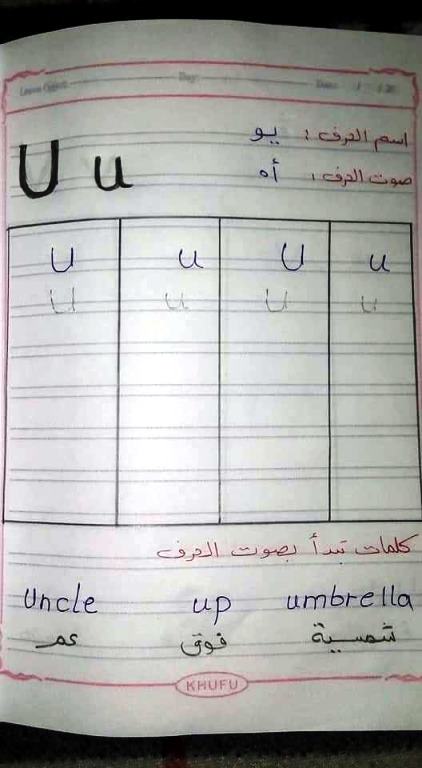 Day:
Date: / / 20
اسم الحرف : يو
صوت الحرف : أه
U u
U u U u
U u U u
كلمات تبدأ بصوت الحرف
Uncle up umbrella
عم فوق شمسية
KHUFU